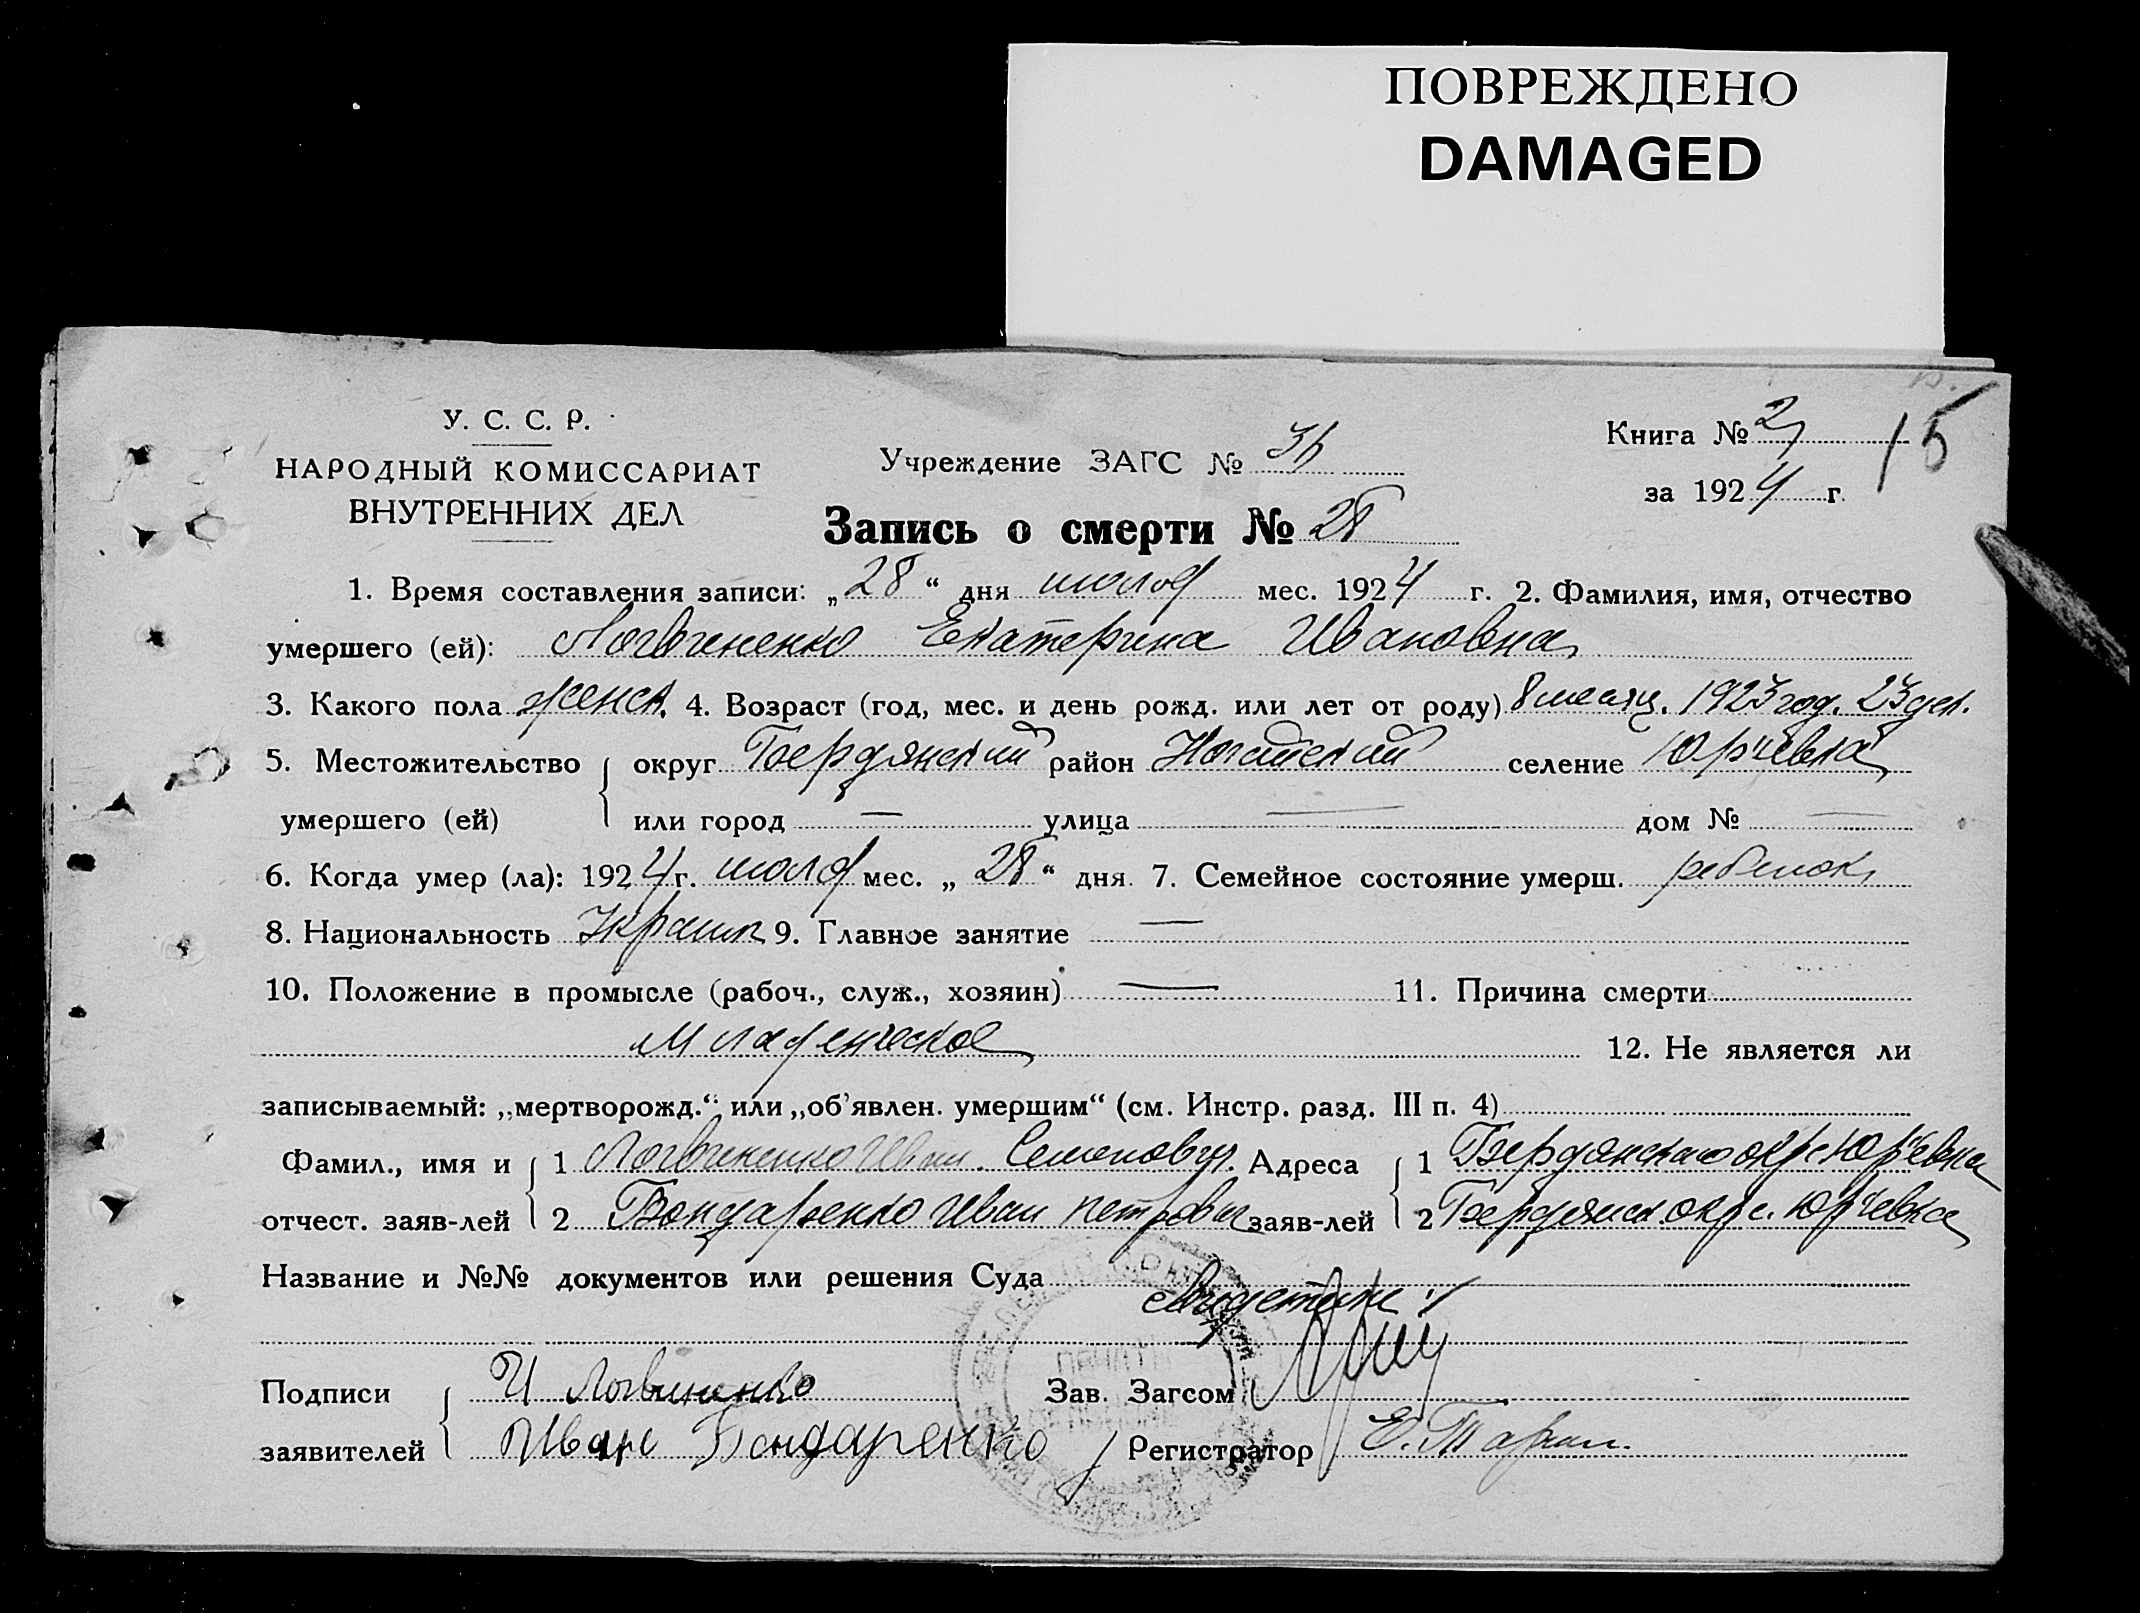 ПОВРЕЖДЕНО
DAMAGED
У. С. С. Р.
НАРОДНЫЙ КОМИССАРИАТ
ВНУТРЕННИХ ДЕЛ
Учреждение ЗАГС №
Книга № 2
15
за 1924 г.
Запись о смерти № 28
1. Время составления записи: „28“ дня июля мес. 1924 г. 2. Фамилия, имя, отчество
умершего (ей): Логвиненко Екатерина Ивановна
3. Какого пола женск. 4. Возраст (год, мес. и день рожд. или лет от роду) 8 месяц. 1923 год. 23
5. Местожительство округ Бердянский район Ногайский селение Юрьевка
умершего (ей) или город — улица — дом № —
6. Когда умер (ла): 1924 г. июля мес. „28“ дня. 7. Семейное состояние умерш. ребенок
8. Национальность Украин 9. Главное занятие —
10. Положение в промысле (рабоч., служ., хозяин) — 11. Причина смерти
Младенческое 12. Не является ли
записываемый: „мертворожд.“ или „об’явлен. умершим“ (см. Инстр. разд. III п. 4)
Фамил., имя и 1 Логвиненко Иван Семенович. Адреса 1 Бердянская окр с Юрьевка
отчест. заяв-лей 2 Бондаренко Иван Петрович заяв-лей 2 Бердянск. окр с. Юрьевка
Название и №№ документов или решения Суда
Подписи И Логвиненко Зав. Загсом
заявителей Иван Бондаренко Регистратор